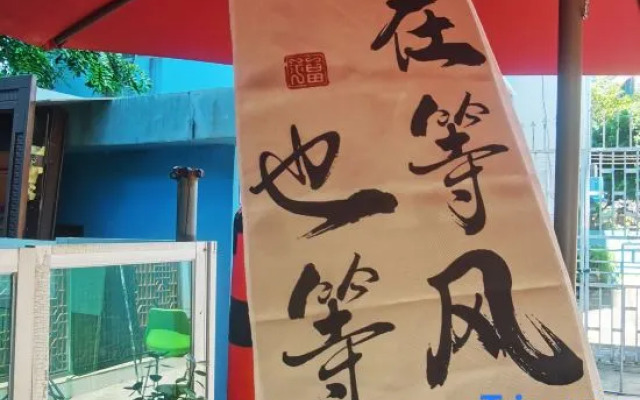 在等风
也等